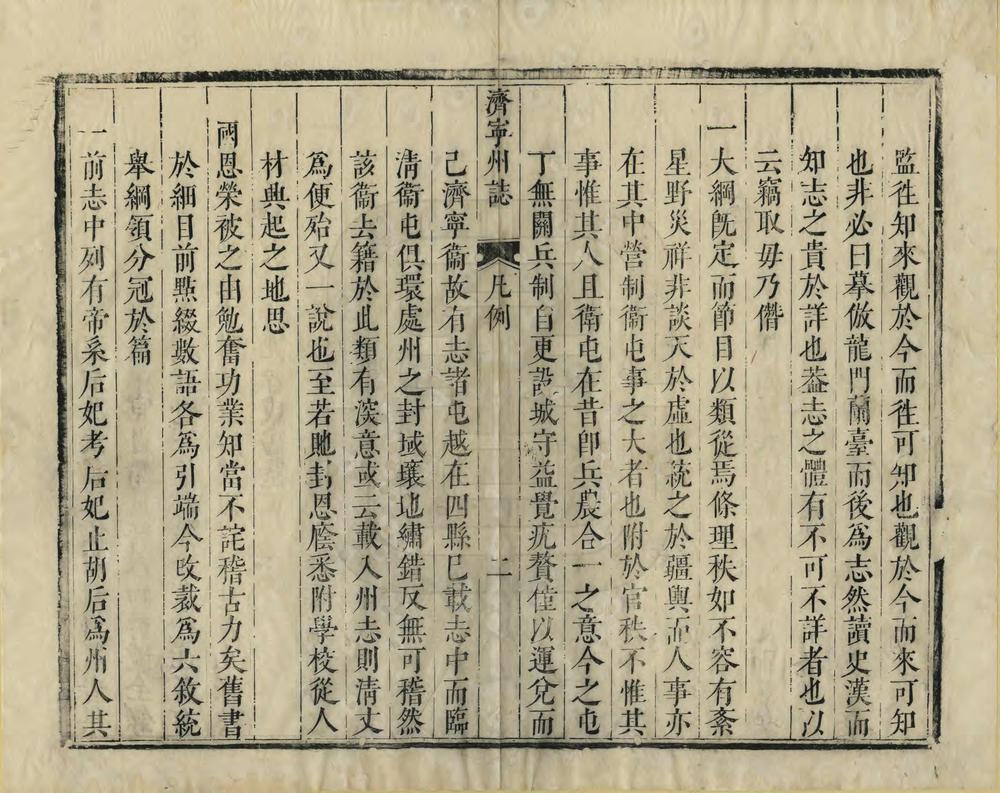 監徃知來觀於今而徃可知也觀於今而來可知
也非必曰摹倣龍門蘭臺而後爲志然讀史漢而
知志之貴於詳也葢志之體有不可不詳者也以
云竊取毋乃僭
一大綱旣定而節目以類從焉條理秩如不容有紊
星野災祥非談天於虛也統之於疆輿而人事亦
在其中營制衞屯事之大者也附於官秩不惟其
事惟其人且衛屯在昔卽兵農合一之意今之屯
丁無關兵制自更設城守益覺疣贅僅以運兌而
濟寧州誌 凡例 二
已濟寧衞故有志諸屯越在四縣已載志中而臨
淸衞屯俱環處州之封域壤地繡錯反無可稽然
該衞去籍於此類有深意或云載入州志則淸丈
爲便殆又一說也至若貤封恩廕悉附學校從人
材典起之地思
兩恩榮被之由勉奮功業知當不詫稽古力矣舊書
於細目前㸃綴數語各爲引端今攺裁爲六敘統
舉綱領分冠於篇
一前志中列有帝系后妃考后妃止胡后爲州人其